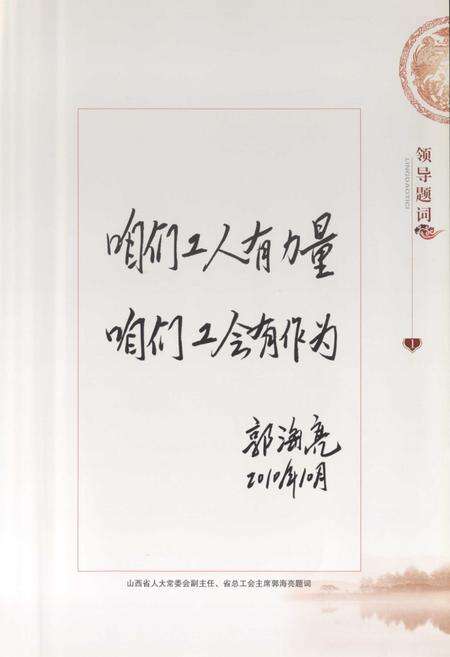 领导题词
LINGDAOTICI
咱们工人有力量
咱们工会有作为
郭海亮
2010年10月
1
山西省人大常委会副主任、省总工会主席郭海亮题词